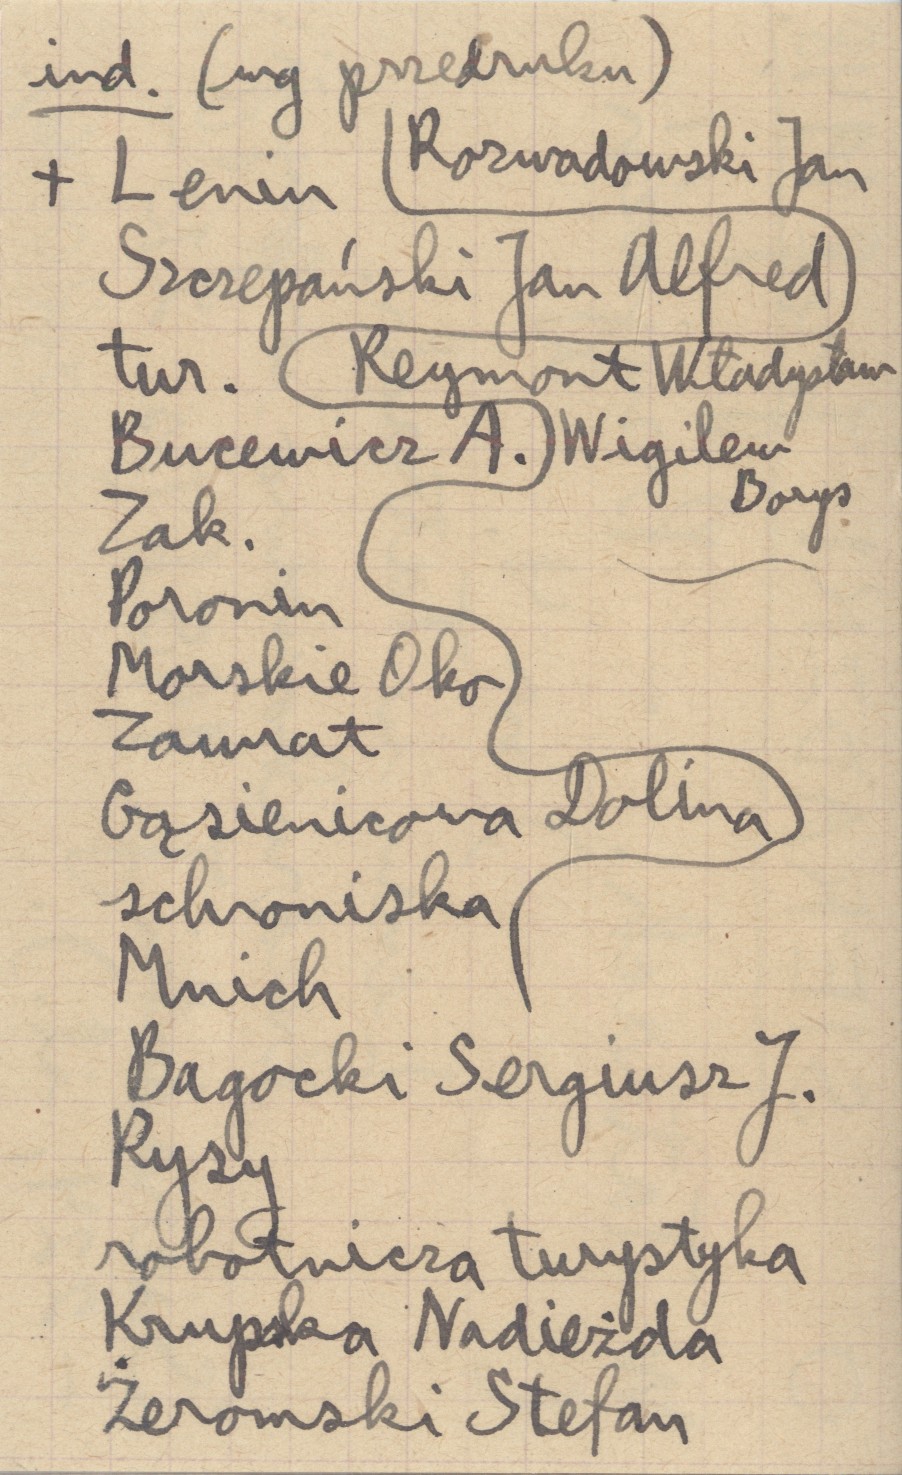 ind. (wg przedruku)
+ Lenin
Szczepański Jan Alfred
tur.
Bucewicz A.
Zak.
Poronin
Morskie Oko
Zawrat
Gąsienicowa Dolina
schroniska
Mnich
Bagocki Sergiusz J.
Rysy
robotnicza turystyka
Krupska Nadieżda
Żeromski Stefan
Rozwadowski Jan
Reymont Władysław
Wigilew
Borys